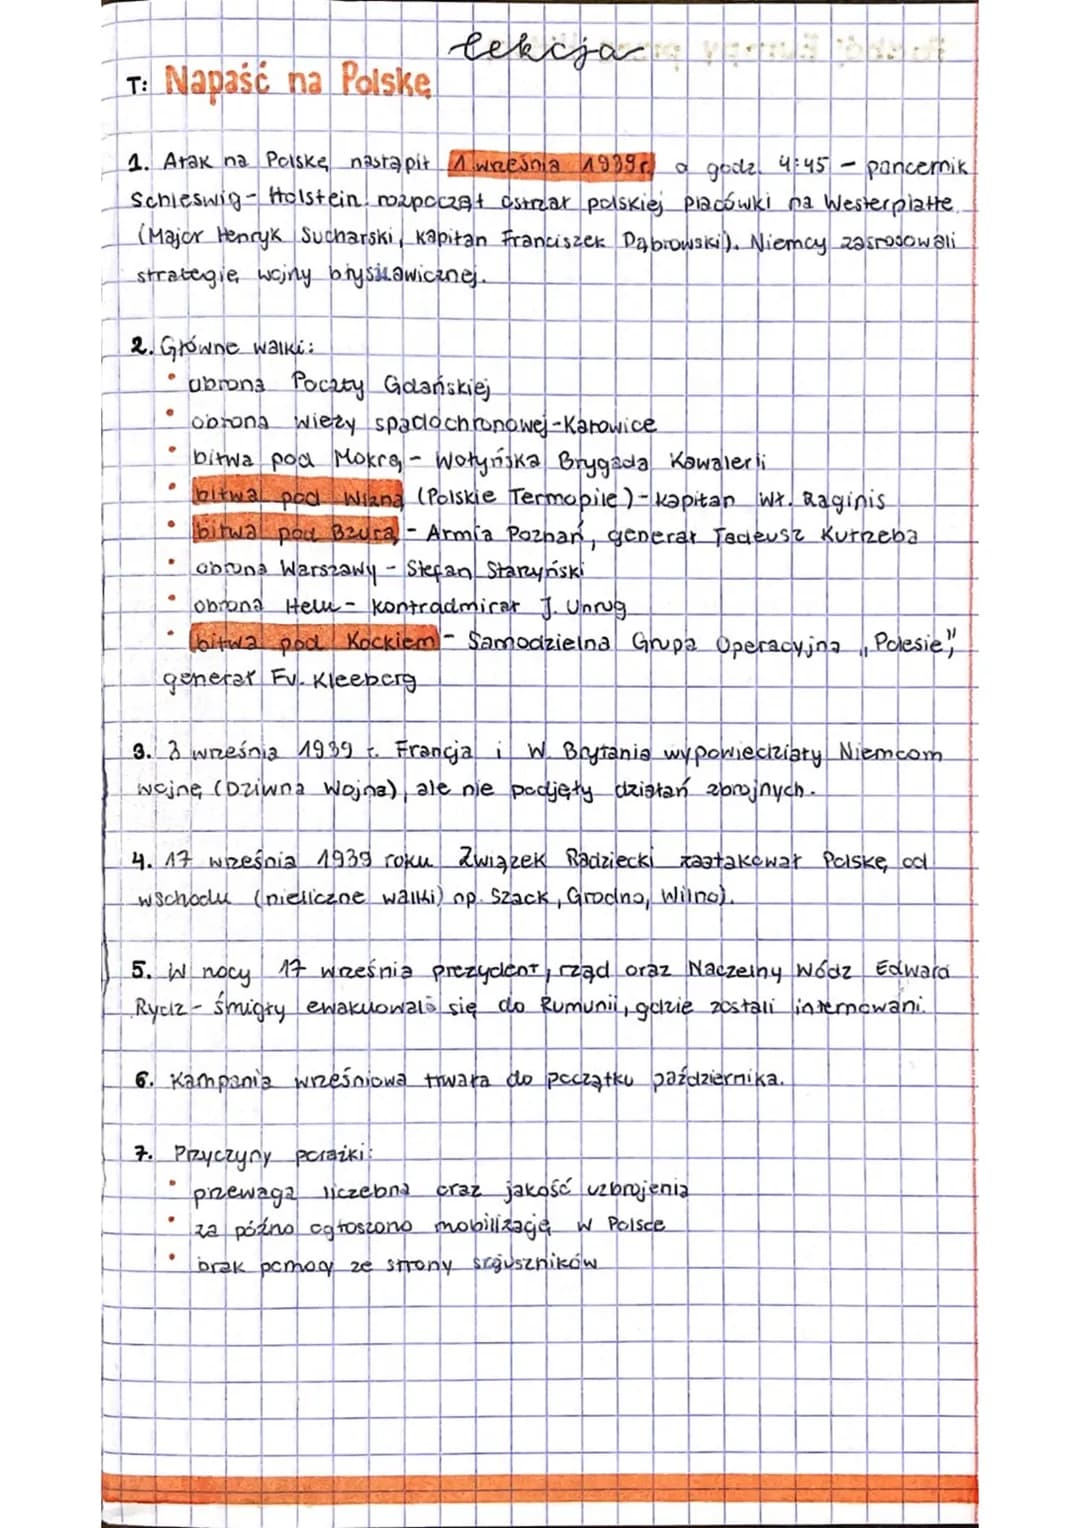 lekcja
T: Napaść na Polskę
1. Atak na Polskę nastąpił 1 września 1939r. o godz. 4:45 - pancernik
Schleswig-Holstein rozpoczął ostrzał polskiej placówki na Westerplatte.
(Major Henryk Sucharski, kapitan Franciszek Dąbrowski). Niemcy zastosowali
strategię wojny błyskawicznej.
2. Główne walki:
• obrona Poczty Gdańskiej
• obrona wieży spadochronowej-Katowice
• bitwa pod Mokrą - Wołyńska Brygada Kawalerii
• bitwa pod Wizną (Polskie Termopile)-kapitan Wł. Raginis
• bitwa pod Bzurą - Armia Poznań, generał Tadeusz Kutrzeba
• obrona Warszawy - Stefan Starzyński
• obrona Helu - kontradmirał J. Unrug
• bitwa pod Kockiem - Samodzielna Grupa Operacyjna „Polesie",
generał Fv. Kleeberg
3. 3 września 1939 r. Francja i W. Brytania wypowiedziały Niemcom
wojnę (Dziwna Wojna), ale nie podjęły działań zbrojnych.
4. 17 września 1939 roku Związek Radziecki zaatakował Polskę od
wschodu (nieliczne walki) np. Szack, Grodno, Wilno).
5. W nocy 17 września prezydent, rząd oraz Naczelny Wódz Edward
Rydz-śmigły ewakuowali się do Rumunii, gdzie zostali internowani.
6. Kampania wrześniowa trwała do początku października.
7. Przyczyny porażki:
• przewaga liczebna oraz jakość uzbrojenia
• za późno ogłoszono mobilizację w Polsce
• brak pomocy ze strony sojuszników